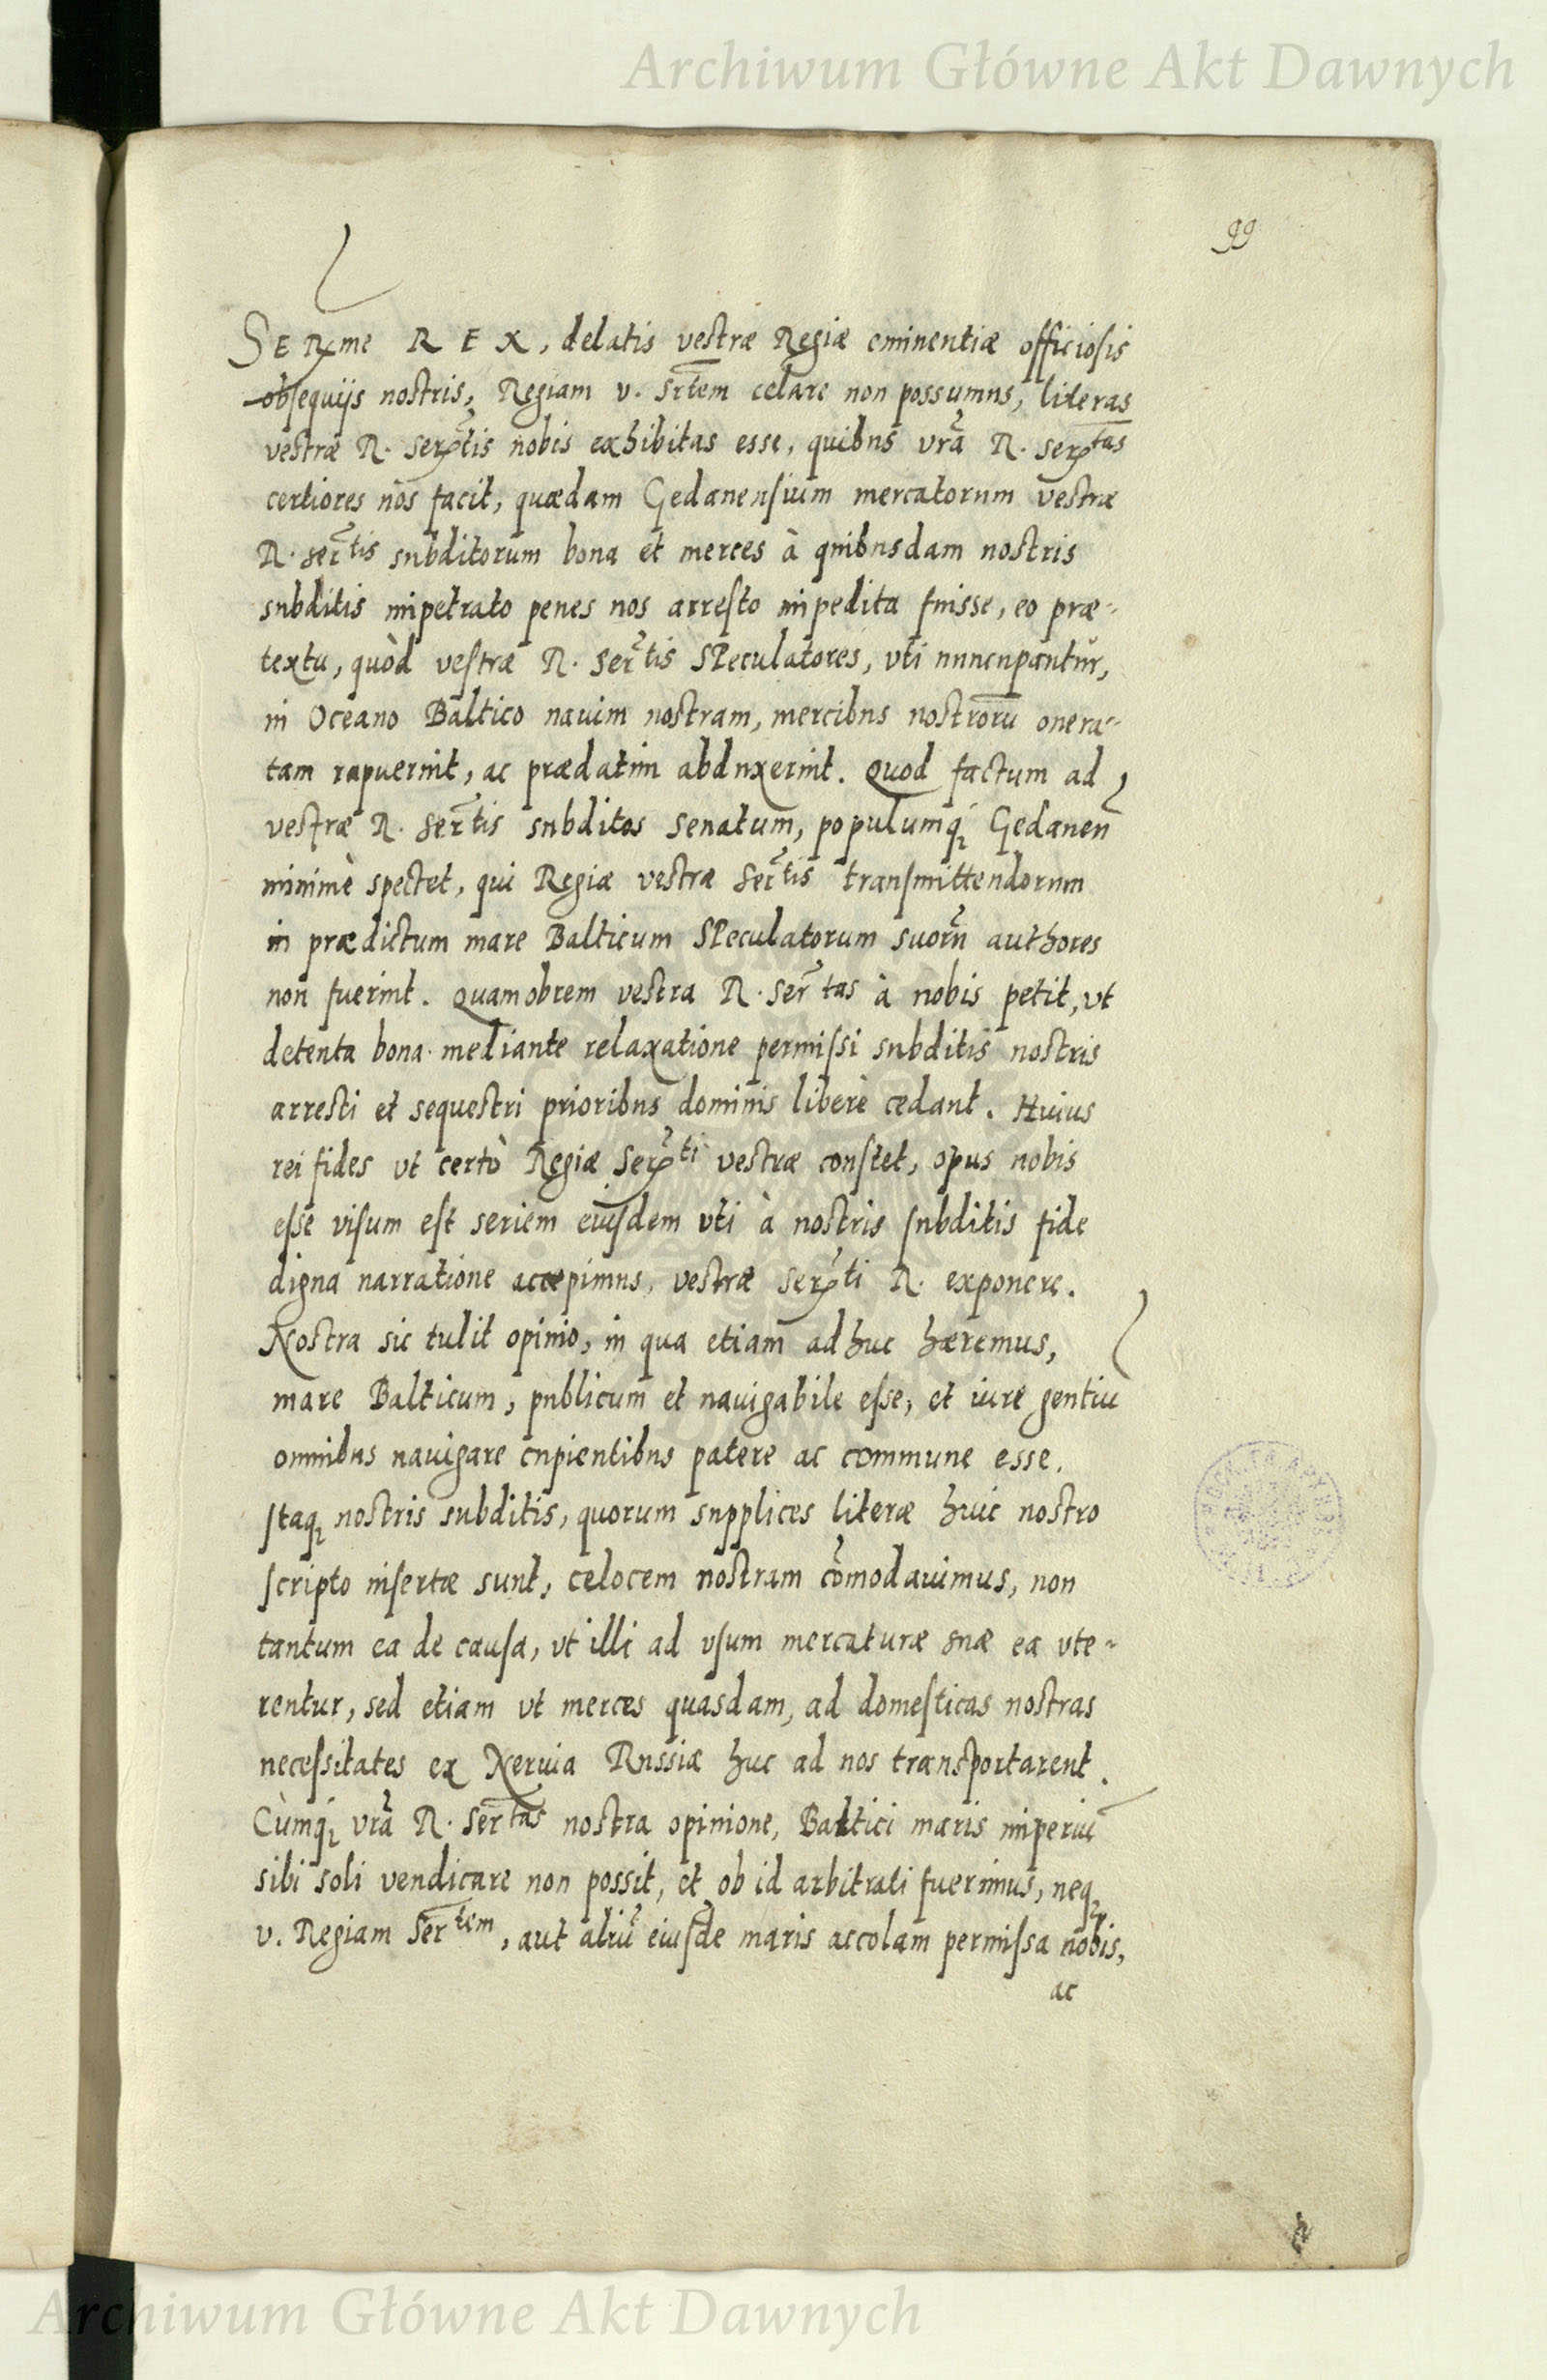 Archiwum Główne Akt Dawnych
99
SERme REX, delatis vestræ Regiæ eminentiæ officiosis
obsequijs nostris, Regiam v. Srtem celare non possumus, literas
vestræ R. sertis nobis exhibitas esse, quibus vrã R. sertas
certiores nos facit, quædam Gedanensium mercatorum vestræ
R. sertis subditorum bona et merces à quibusdam nostris
subditis impetrato penes nos arresto impedita fuisse, eo præ-
textu, quòd vestræ R. Sertis Speculatores, vti nuncupantur,
in Oceano Baltico nauim nostram, mercibus nostrorũ onera-
tam rapuerint, ac prædatim abduxerint. Quod factum ad
vestræ R. Sertis subditos Senatum, populumq; Gedanen
minimè spectet, qui Regiæ vestræ Sertis transmittendorum
in prædictum mare Balticum Speculatorum suorũ authores
non fuerint. Quamobrem vestra R. Sertas à nobis petit, vt
detenta bona mediante relaxatione permissi subditis nostris
arresti et sequestri prioribus dominis liberè cedant. Huius
rei fides vt certò Regiæ Serti vestræ constet, opus nobis
esse visum est seriem eiusdem vti à nostris subditis fide
digna narratione accepimus, vestræ Serti R. exponere.
Nostra sic tulit opinio, in qua etiam adhuc hæremus,
mare Balticum, publicum et nauigabile esse, et iure gentiu
omnibus nauigare cupientibus patere ac commune esse.
Itaq; nostris subditis, quorum supplices literæ huic nostro
scripto insertæ sunt, celocem nostram cõmodauimus, non
tantum ea de causa, vt illi ad vsum mercaturæ suæ ea vte-
rentur, sed etiam vt merces quasdam, ad domesticas nostras
necessitates ex Neruia Russiæ huc ad nos transportarent.
Cùmq; vrã R. Sertas nostra opinione, Baltici maris imperiũ
sibi soli vendicare non possit, et ob id arbitrati fuerimus, neq;
v. Regiam Sertem, aut aliũ eiusdẽ maris accolam permissa nobis,
ac
Archiwum Główne Akt Dawnych